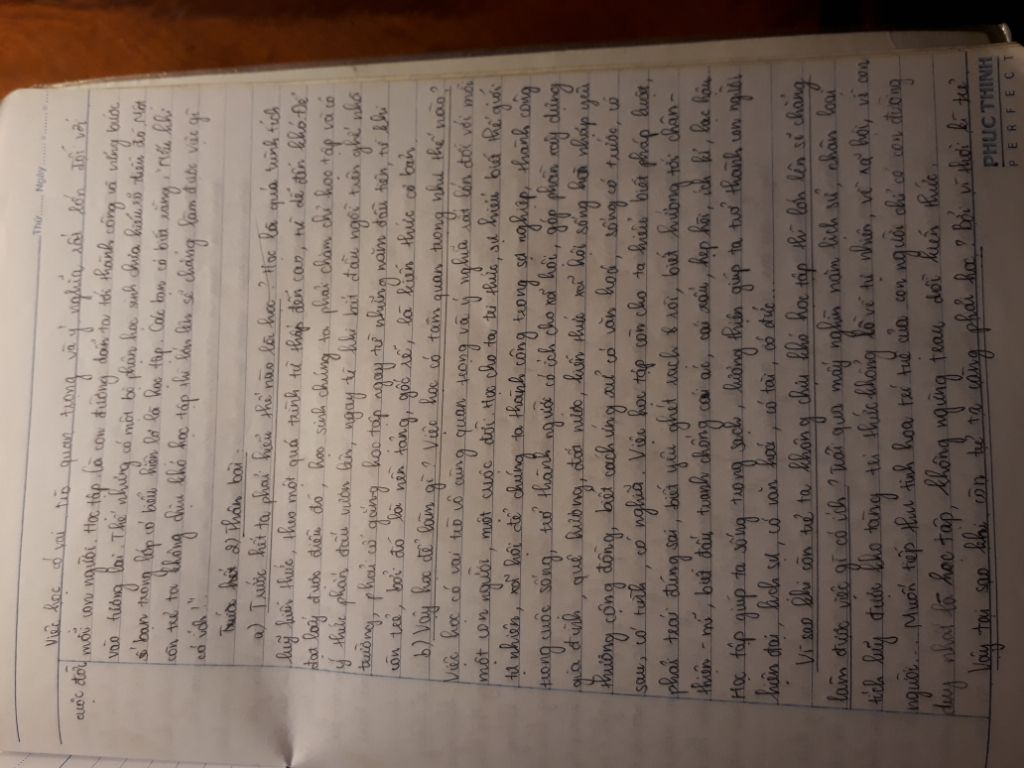 Thứ ........ Ngày ........
Việc học có vai trò quan trọng và ý nghĩa rất lớn đối với
cuộc đời mỗi con người. Học tập là con đường dẫn ta tới thành công và vững bước
vào tương lai. Thế nhưng có một bộ phận học sinh chưa hiểu rõ điều đó. Một
số bạn trong lớp có biểu hiện lơ là học tập. Các bạn có biết rằng, "Nếu khi
còn trẻ ta không chịu khó học tập thì lớn lên sẽ chẳng làm được việc gì
có ích!"
2) Thân bài:
a) Trước hết ta phải hiểu thế nào là học? Học là quá trình tích
luỹ kiến thức, theo một quá trình từ thấp đến cao, từ dễ đến khó. Để
đạt được điều đó, học sinh chúng ta phải chăm chỉ học tập và có
ý thức phấn đấu vươn lên, ngay từ khi bắt đầu ngồi trên ghế nhà
trường, phải cố gắng học tập ngay từ những năm đầu tiên, từ khi
còn trẻ, bởi đó là nền tảng, gốc rễ, là kiến thức cơ bản.
b) Vậy học để làm gì? Việc học có tầm quan trọng như thế nào?
Việc học có vai trò vô cùng quan trọng và ý nghĩa rất lớn đối với mỗi
một con người, một cuộc đời. Học cho ta tri thức, sự hiểu biết thế giới
tự nhiên, xã hội để chúng ta thành công trong sự nghiệp, thành công
trong cuộc sống, trở thành người có ích cho xã hội, góp phần xây dựng
gia đình, quê hương, đất nước, kiến thức xã hội sống hoà nhập yêu
thương cộng đồng, biết cách ứng xử có văn hoá, sống có trước, có
sau, có tình, có nghĩa. Việc học tập còn cho ta hiểu biết pháp luật,
phải trái đúng sai, biết yêu ghét rạch ròi, biết hướng tới chân -
thiện - mĩ, biết đấu tranh chống cái ác, cái xấu, hẹp hòi, ích kỉ, lạc hậu.
Học tập giúp ta sống trong sạch, hướng thiện giúp ta trở thành con người
hiện đại, lịch sự có văn hoá, có tài, có đức...
Vì sao khi còn trẻ ta không chịu khó học tập thì lớn lên sẽ chẳng
làm được việc gì có ích? Trải qua mấy nghìn năm lịch sử, nhân loại
tích luỹ được kho tàng tri thức khổng lồ về tự nhiên, về xã hội, về con
người... Muốn tiếp thu tinh hoa trí tuệ của con người chỉ có con đường
duy nhất là học tập, không ngừng trau dồi kiến thức.
Vậy tại sao khi còn trẻ ta càng phải học? Bởi vì thời kì trẻ
PHUCTHINH
PERFECT